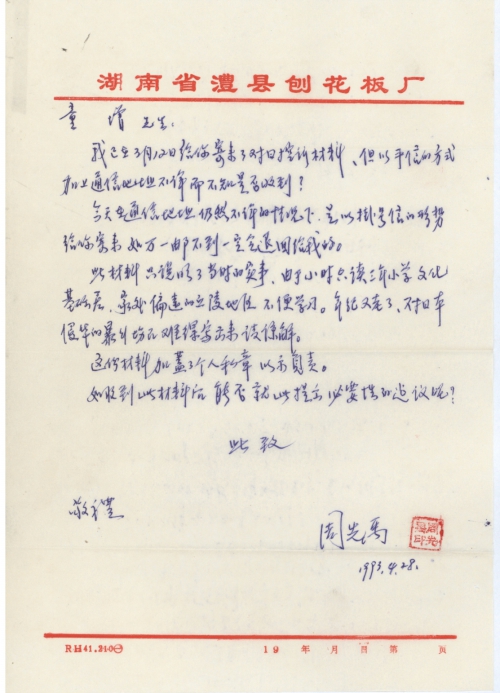 湖南省澧县刨花板厂
童增先生:
我已在3月12日给你寄来了对日控诉材料、但以平信的方式
加上通信地址不详而不知是否收到?
今天在通信地址仍然不详的情况下、是以挂号信的形势
给你寄来如万一邮不到一定会退回给我的。
此材料只说明了当时的实事、由于小时只读三年小学文化
基础差、最处偏远的丘陵地区不便学习。年纪又老了、对日本
侵华的暴行 难 写出来谅解。
这份材料加盖了个人私章以示负责。
如收到此材料后能否就此提出必要性的建议呢?
此致
敬礼
周先禹
1993.4.28.
RH41.210
19 年 月 日 第 页